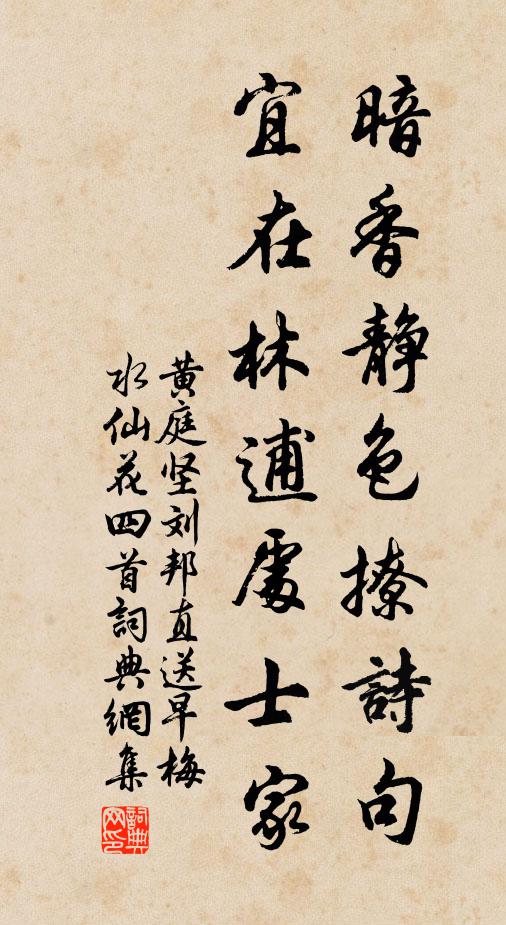 暗香静色撩詩句
宜在林逋處士家
黄庭坚刘邦直送早梅
水仙花四首詞典網集
詞典
网印